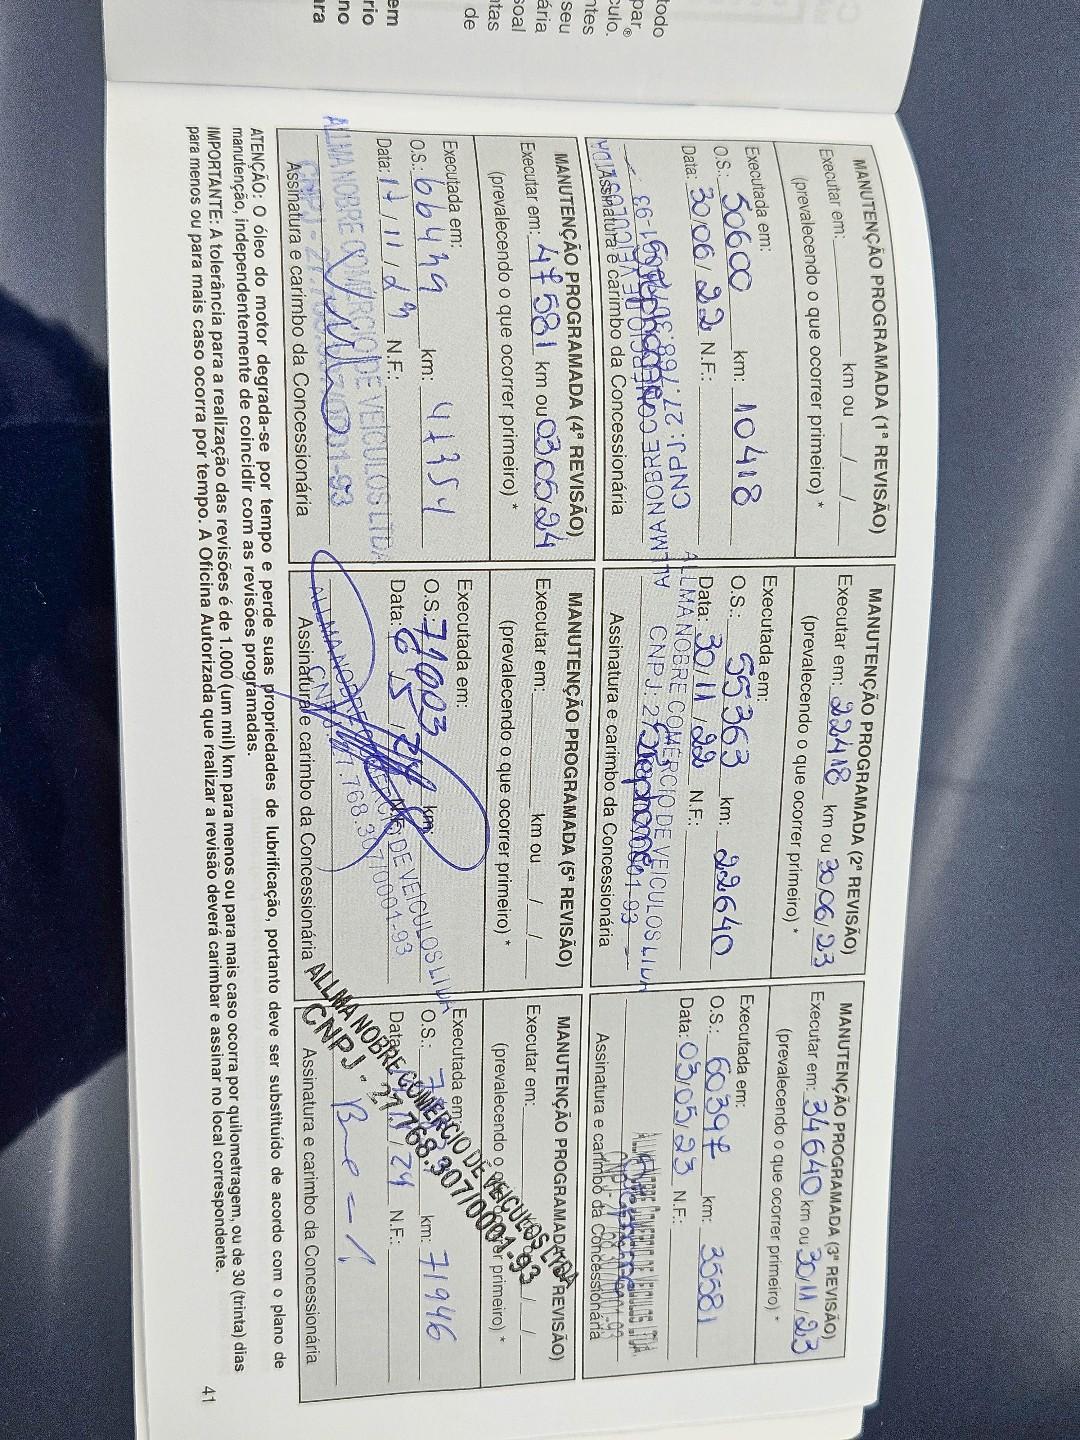 todo
par®
culo.
ntes
seu
ária
soal
ntas
de
em
rio
no
ara
MANUTENÇÃO PROGRAMADA (1ª REVISÃO)
Executar em: km ou / /
(prevalecendo o que ocorrer primeiro) *
Executada em:
O.S.: 50600 km: 10418
Data: 30/06/22 N.F.:
CNPJ: 27.768.307/0001-93
ALLMA NOBRE COMERCIO DE VEICULOS LTDA
Assinatura e carimbo da Concessionária
MANUTENÇÃO PROGRAMADA (2ª REVISÃO)
Executar em: 22418 km ou 30/06/23
(prevalecendo o que ocorrer primeiro) *
Executada em:
O.S.: 55363 km: 22640
Data: 30/11/22 N.F.:
ALLMA NOBRE COMERCIO DE VEICULOS LTDA
CNPJ: 27 0001-93
Assinatura e carimbo da Concessionária
MANUTENÇÃO PROGRAMADA (3ª REVISÃO)
Executar em: 34640 km ou 30/11/23
(prevalecendo o que ocorrer primeiro) *
Executada em:
O.S.: 60397 km: 35581
Data: 03/05/23 N.F.:
Assinatura e carimbo da Concessionária
MANUTENÇÃO PROGRAMADA (4ª REVISÃO)
Executar em: 47581 km ou 03/05/24
(prevalecendo o que ocorrer primeiro) *
Executada em:
O.S.: km: 47354
Data: N.F.:
ALLMA NOBRE COMERCIO DE VEICULOS LTDA
Assinatura e carimbo da Concessionária
MANUTENÇÃO PROGRAMADA (5ª REVISÃO)
Executar em: km ou / /
(prevalecendo o que ocorrer primeiro) *
Executada em:
O.S.: 71003 km:
Data:
ALLMA NOBRE COMERCIO DE VEICULOS LTDA
CNPJ 27.768.307/0001-93
Assinatura e carimbo da Concessionária
MANUTENÇÃO PROGRAMADA REVISÃO)
Executar em: / /
(prevalecendo o que ocorrer primeiro) *
Executada em:
O.S.: km: 71946
Data: 24 N.F.:
ALLMA NOBRE COMERCIO DE VEICULOS LTDA
CNPJ - 27.768.307/0001-93
Assinatura e carimbo da Concessionária
ATENÇÃO: O óleo do motor degrada-se por tempo e perde suas propriedades de lubrificação, portanto deve ser substituído de acordo com o plano de
manutenção, independentemente de coincidir com as revisões programadas.
IMPORTANTE: A tolerância para a realização das revisões é de 1.000 (um mil) km para menos ou para mais caso ocorra por quilometragem, ou de 30 (trinta) dias
para menos ou para mais caso ocorra por tempo. A Oficina Autorizada que realizar a revisão deverá carimbar e assinar no local correspondente.
41